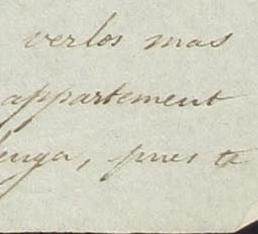 verlos mas
appartement
enga, pues te